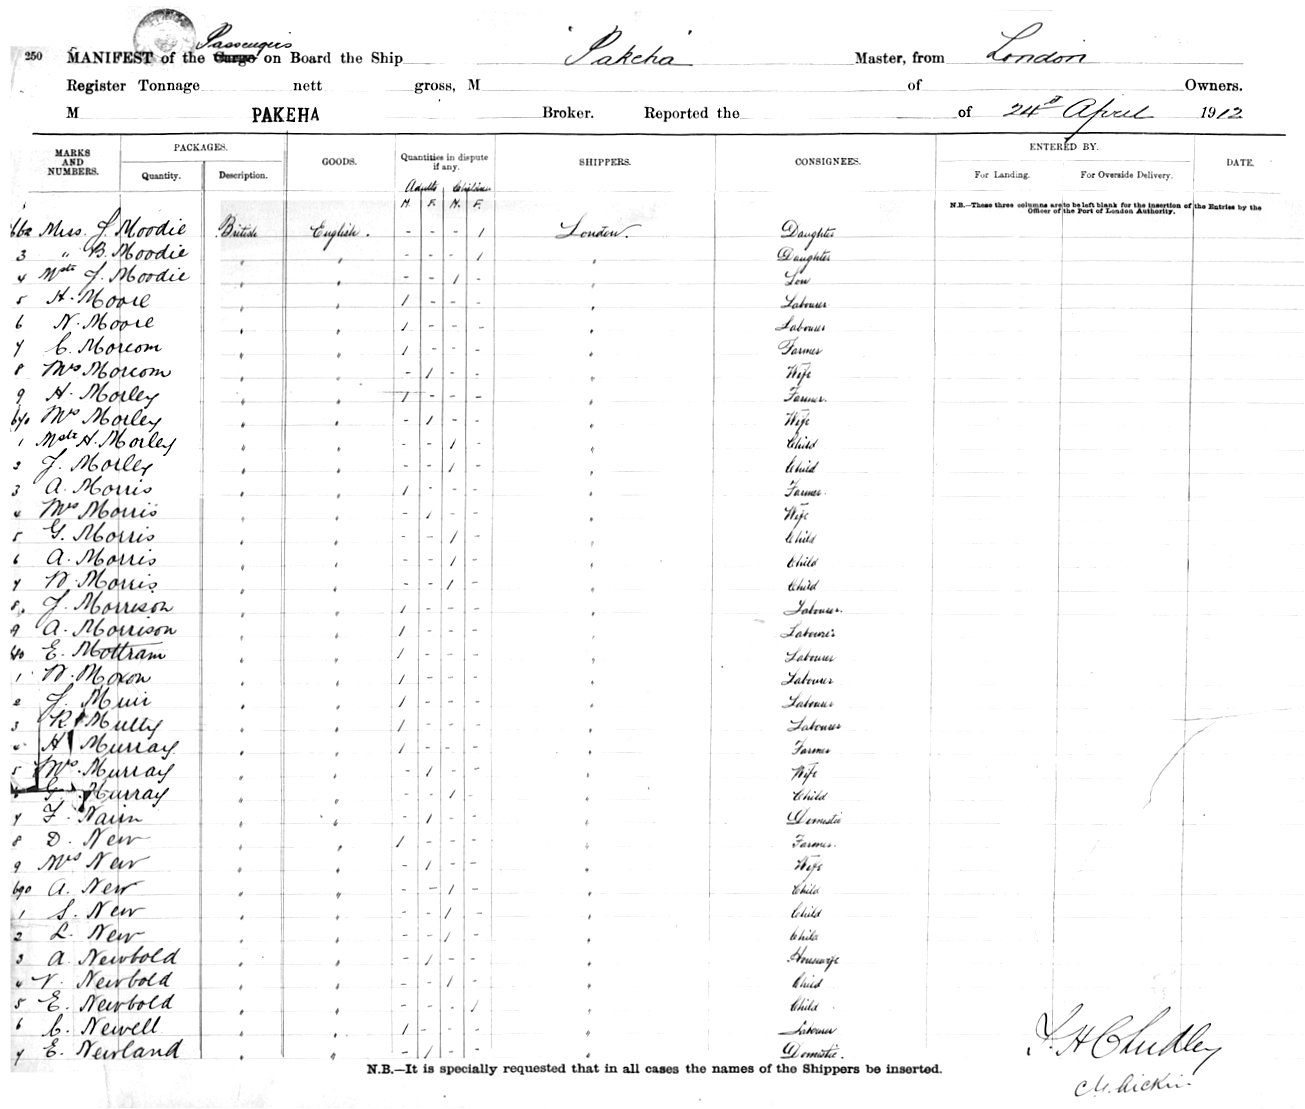 250 MANIFEST of the Cargo Passengers on Board the Ship "Pakeha" Master, from London
Register Tonnage nett gross, M of Owners.
M PAKEHA Broker. Reported the of 24th April 1912
MARKS AND NUMBERS. PACKAGES. Quantity. Description. GOODS. Quantities in dispute if any. SHIPPERS. CONSIGNEES. ENTERED BY. For Landing. For Overside Delivery. DATE.
Adults Children
M. F. M. F.
N.B.—These three columns are to be left blank for the insertion of the Entries by the
Officer of the Port of London Authority.
662 Miss J. Moodie British English. - - - 1 London. Daughter
3 " B. Moodie " " - - - 1 " Daughter
4 Mstr J. Moodie " " - - 1 - " Son
5 H. Moore " " 1 - - - " Labourer
6 N. Moore " " 1 - - - " Labourer
7 C. Morcom " " 1 - - - " Farmer
8 Mrs Morcom " " - 1 - - " Wife
9 H. Morley " " 1 - - - " Farmer.
670 Mrs Morley " " - 1 - - " Wife
1 Mstr H. Morley " " - - 1 - " Child
2 J. Morley " " - - 1 - " Child
3 A. Morris " " 1 - - - " Farmer.
4 Mrs Morris " " - 1 - - " Wife
5 G. Morris " " - - 1 - " Child
6 A. Morris " " - - 1 - " Child
7 W. Morris " " - - 1 - " Child
8 J. Morrison " " 1 - - - " Labourer.
9 A. Morrison " " 1 - - - " Labourer
680 E. Mottram " " 1 - - - " Labourer
1 W. Moxon " " 1 - - - " Labourer
2 J. Muir " " 1 - - - " Labourer
3 R. Mutty " " 1 - - - " Labourer
4 H Murray " " 1 - - - " Farmer
5 Mrs. Murray " " - 1 - - " Wife
6 G. Murray " " - - 1 - " Child
7 F. Nairn " " - 1 - - " Domestic
8 D. New " " 1 - - - " Farmer.
9 Mrs New " " - 1 - - " Wife
690 A. New " " - - 1 - " Child
1 S. New " " - - 1 - " Child
2 L. New " " - - 1 - " Child
3 A. Newbold " " - 1 - - " Housewife
4 V. Newbold " " - - 1 - " Child
5 E. Newbold " " - - - 1 " Child
6 C. Newell " " 1 - - - " Labourer
7 E. Newland " " - 1 - - " Domestic.
F. H Chudley
N.B.—It is specially requested that in all cases the names of the Shippers be inserted.